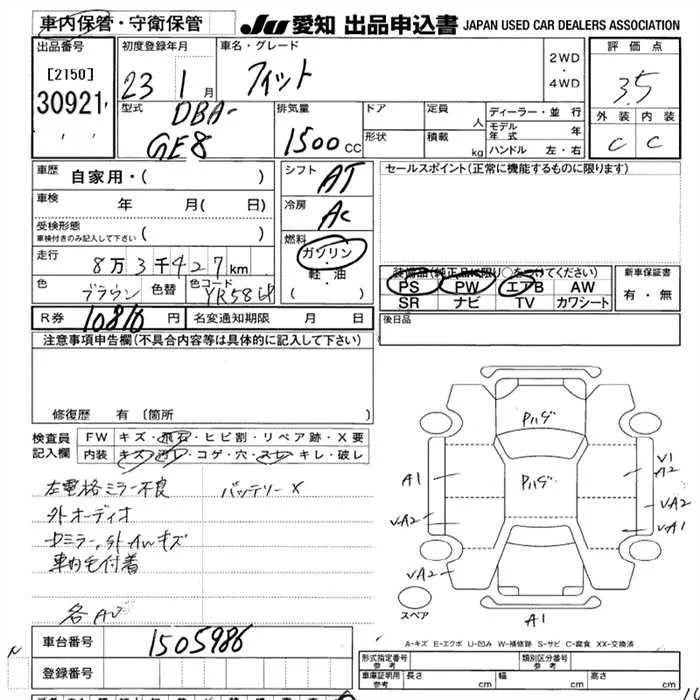 車内保管・守衛保管
JU 愛知 出品申込書 JAPAN USED CAR DEALERS ASSOCIATION
出品番号
[2150]
30921
初度登録年月
23 1月
車名・グレード
フィット
2WD
・
4WD
評価点
3.5
外装 内装
C C
型式 DBA-
GE8
排気量
1500cc
ドア
形状
定員 人
積載 kg
ディーラー・並行
モデル年式 年
ハンドル 左・右
車歴 自家用・( )
車検 年 月( 日)
受検形態
車検付きのみ記入して下さい ( )
走行 8万3千427km
色 ブラウン 色替 色コード YR586P
シフト AT
冷房 AC
燃料
ガソリン
・
軽・油
( )
セールスポイント(正常に機能するものに限ります)
装備品(純正品に限り○をつけてください)
PS PW エアB AW
SR ナビ TV カワシート
新車保証書
有・無
R券 10810円 名変通知期限 月 日
後日品
注意事項申告欄(不具合内容等は具体的に記入して下さい)
修復歴 有 〔箇所
検査員記入欄
FW キズ・飛石・ヒビ割・リペア跡・X要
内装 キズ・汚レ・コゲ・穴・スレ・キレ・破レ
左電格ミラー不良 バッテリーX
外オーディオ
ナミラー、外AWキズ
車内毛付着
各AU
Pハゲ
Pハゲ
A1
vA2
vA2
V1
A2
vA2
vA1
A1
スペア
A-キズ E-エクボ U-凹み W-補修跡 S-サビ C-腐食 XX-交換済
車台番号 1505986
登録番号
型式指定番号 参考
類別区分番号 参考
車庫証明用 参考 長さ cm 幅 cm 高さ cm